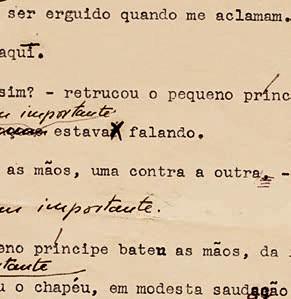 ser erguido quando me aclamam.
aquí.
sim? - retrucou o pequeno prínc
importante
estava falando.
as mãos, uma contra a outra, -
importante.
eno príncipe bateu as mãos, da
tante
u o chapéu, em modesta saudação